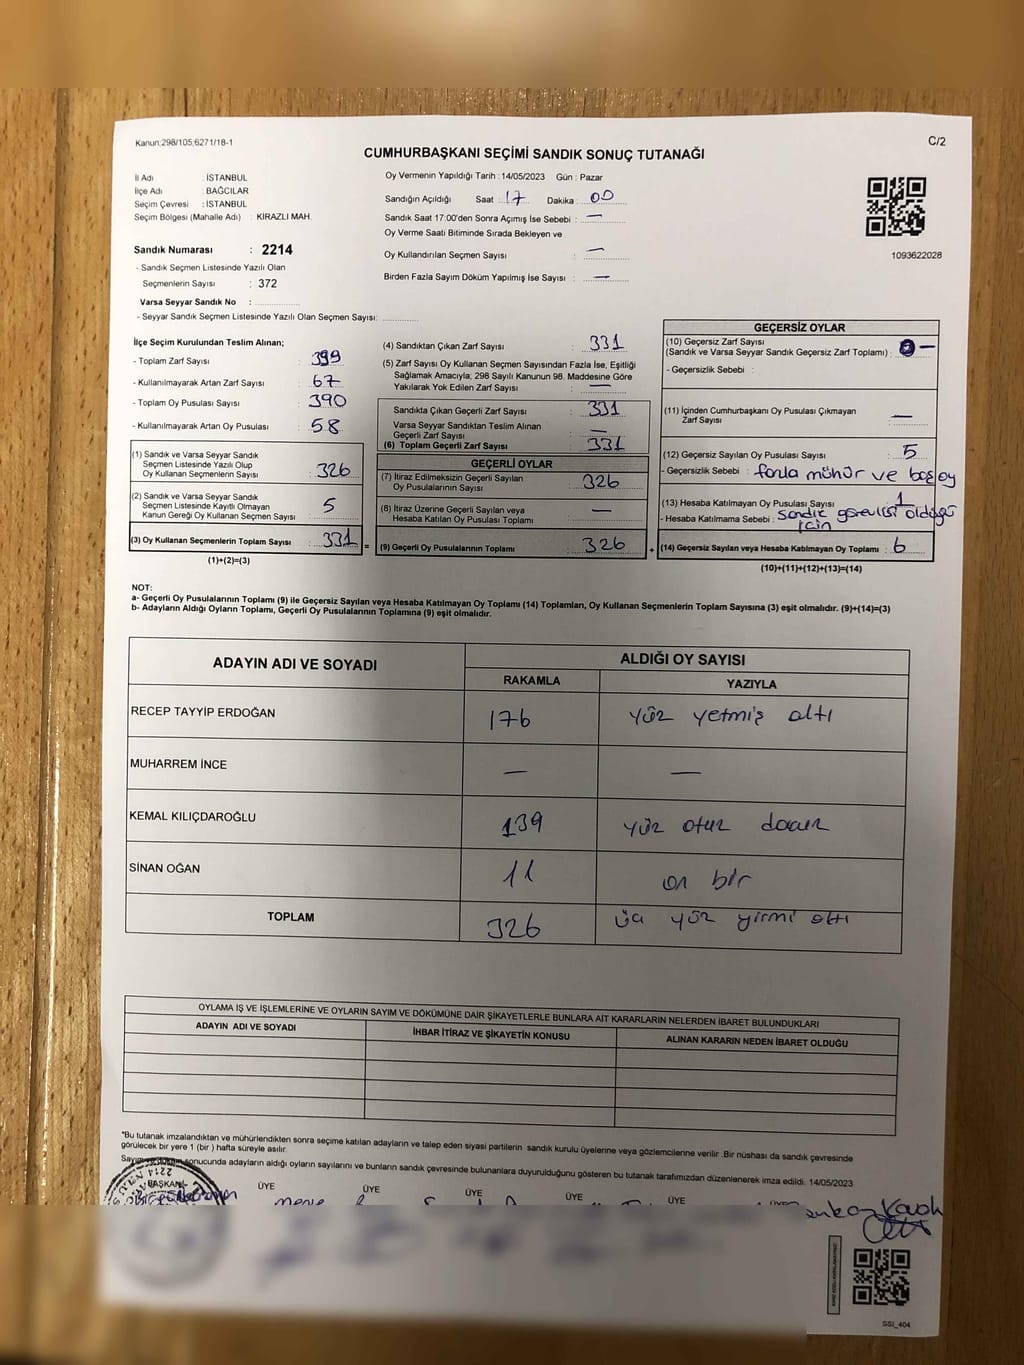 Kanun;298/105;6271/18-1
C/2
CUMHURBAŞKANI SEÇİMİ SANDIK SONUÇ TUTANAĞI
İl Adı : İSTANBUL
İlçe Adı : BAĞCILAR
Seçim Çevresi : İSTANBUL
Seçim Bölgesi (Mahalle Adı) : KİRAZLI MAH.
Sandık Numarası : 2214
- Sandık Seçmen Listesinde Yazılı Olan
Seçmenlerin Sayısı : 372
Varsa Seyyar Sandık No :
- Seyyar Sandık Seçmen Listesinde Yazılı Olan Seçmen Sayısı:
Oy Vermenin Yapıldığı Tarih : 14/05/2023 Gün : Pazar
Sandığın Açıldığı Saat : 17 Dakika : 00
Sandık Saat 17:00'den Sonra Açımış İse Sebebi : —
Oy Verme Saati Bitiminde Sırada Bekleyen ve
Oy Kullandırılan Seçmen Sayısı : —
Birden Fazla Sayım Döküm Yapılmış İse Sayısı : —
1093622028
İlçe Seçim Kurulundan Teslim Alınan;
- Toplam Zarf Sayısı : 399
- Kullanılmayarak Artan Zarf Sayısı : 67
- Toplam Oy Pusulası Sayısı : 390
- Kullanılmayarak Artan Oy Pusulası : 58
(1) Sandık ve Varsa Seyyar Sandık
Seçmen Listesinde Yazılı Olup
Oy Kullanan Seçmenlerin Sayısı : 326
(2) Sandık ve Varsa Seyyar Sandık
Seçmen Listesinde Kayıtlı Olmayan
Kanun Gereği Oy Kullanan Seçmen Sayısı : 5
(3) Oy Kullanan Seçmenlerin Toplam Sayısı : 331 =
(1)+(2)=(3)
(4) Sandıktan Çıkan Zarf Sayısı : 331
(5) Zarf Sayısı Oy Kullanan Seçmen Sayısından Fazla İse, Eşitliği
Sağlamak Amacıyla; 298 Sayılı Kanunun 98. Maddesine Göre
Yakılarak Yok Edilen Zarf Sayısı : —
Sandıkta Çıkan Geçerli Zarf Sayısı : 331
Varsa Seyyar Sandıktan Teslim Alınan
Geçerli Zarf Sayısı : —
(6) Toplam Geçerli Zarf Sayısı : 331
GEÇERLİ OYLAR
(7) İtiraz Edilmeksizin Geçerli Sayılan
Oy Pusulalarının Sayısı : 326
(8) İtiraz Üzerine Geçerli Sayılan veya
Hesaba Katılan Oy Pusulası Toplamı : —
(9) Geçerli Oy Pusulalarının Toplamı : 326 +
GEÇERSİZ OYLAR
(10) Geçersiz Zarf Sayısı
(Sandık ve Varsa Seyyar Sandık Geçersiz Zarf Toplamı) : —
- Geçersizlik Sebebi :
(11) İçinden Cumhurbaşkanı Oy Pusulası Çıkmayan
Zarf Sayısı : —
(12) Geçersiz Sayılan Oy Pusulası Sayısı : 5
- Geçersizlik Sebebi : fazla mühür ve boş oy
(13) Hesaba Katılmayan Oy Pusulası Sayısı : 1
- Hesaba Katılmama Sebebi : sandık görevlisi olduğu
için
(14) Geçersiz Sayılan veya Hesaba Katılmayan Oy Toplamı : 6
(10)+(11)+(12)+(13)=(14)
NOT:
a- Geçerli Oy Pusulalarının Toplamı (9) ile Geçersiz Sayılan veya Hesaba Katılmayan Oy Toplamı (14) Toplamları, Oy Kullanan Seçmenlerin Toplam Sayısına (3) eşit olmalıdır. (9)+(14)=(3)
b- Adayların Aldığı Oyların Toplamı, Geçerli Oy Pusulalarının Toplamına (9) eşit olmalıdır.
ADAYIN ADI VE SOYADI
ALDIĞI OY SAYISI
RAKAMLA YAZIYLA
RECEP TAYYİP ERDOĞAN 176 yüz yetmiş altı
MUHARREM İNCE — —
KEMAL KILIÇDAROĞLU 139 yüz otuz dokuz
SİNAN OĞAN 11 on bir
TOPLAM 326 üç yüz yirmi altı
OYLAMA İŞ VE İŞLEMLERİNE VE OYLARIN SAYIM VE DÖKÜMÜNE DAİR ŞİKAYETLERLE BUNLARA AİT KARARLARIN NELERDEN İBARET BULUNDUKLARI
ADAYIN ADI VE SOYADI İHBAR İTİRAZ VE ŞİKAYETİN KONUSU ALINAN KARARIN NEDEN İBARET OLDUĞU
*Bu tutanak imzalandıktan ve mühürlendikten sonra seçime katılan adayların ve talep eden siyasi partilerin sandık kurulu üyelerine veya gözlemcilerine verilir .Bir nüshası da sandık çevresinde
görülecek bir yere 1 (bir ) hafta süreyle asılır.
sonucunda adayların aldığı oyların sayılarını ve bunların sandık çevresinde bulunanlara duyurulduğunu gösteren bu tutanak tarafımızdan düzenlenerek imza edildi. 14/05/2023
2214
BAŞKAN ÜYE ÜYE ÜYE ÜYE ÜYE
SSİ_404